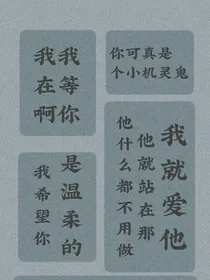 我等你
我在啊
你可真是
个小机灵鬼
我就爱他
他就站在那
他什么都不用做
是温柔的
我希望你